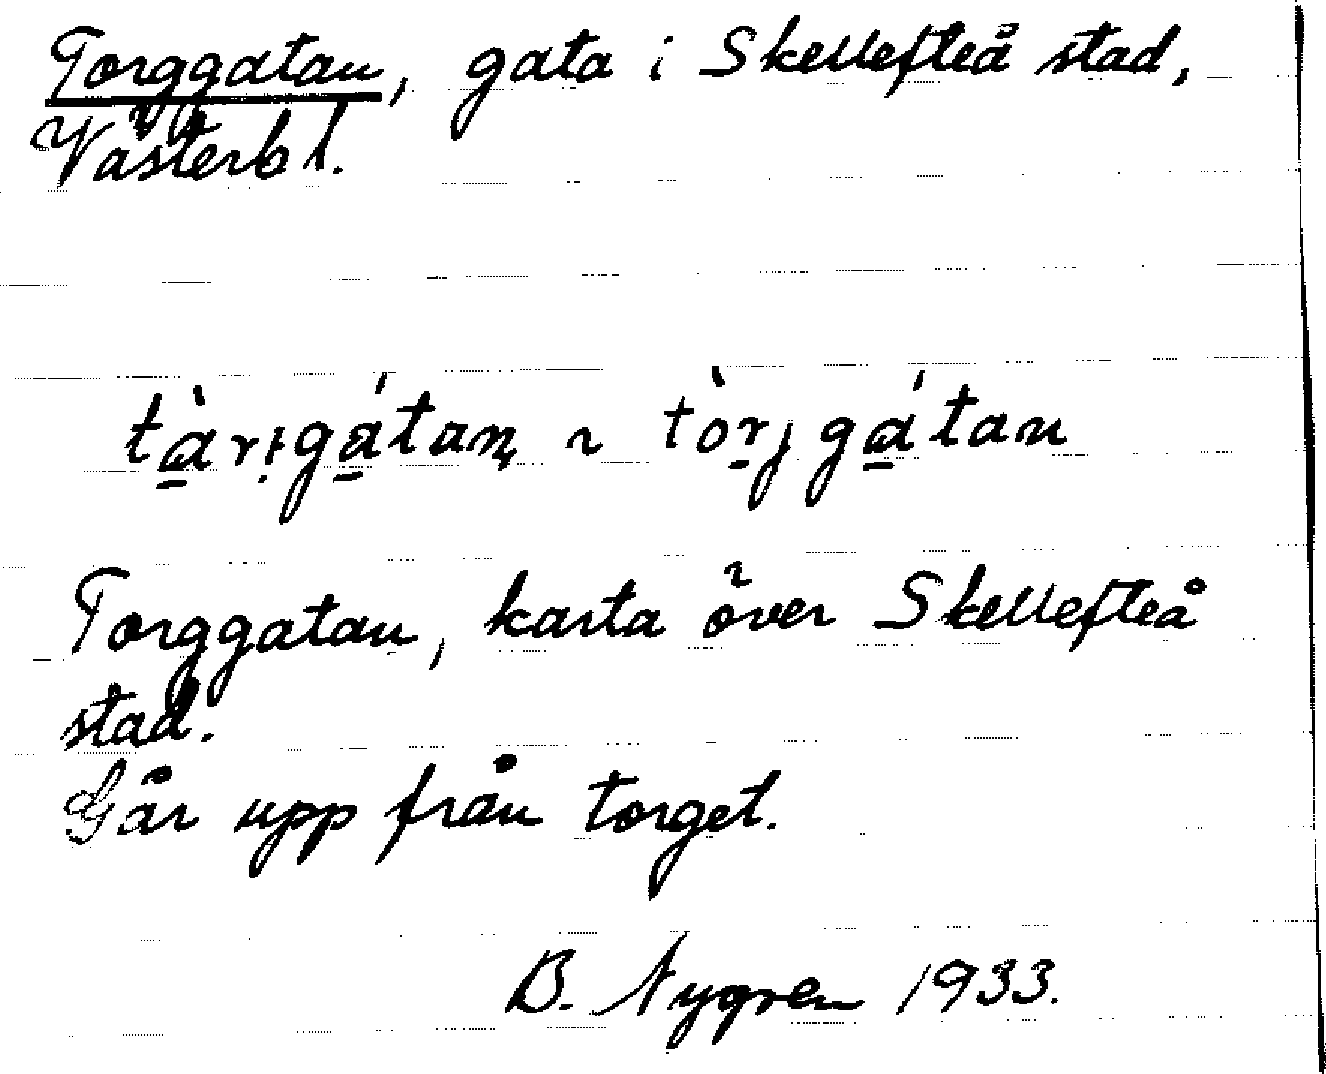 Torggatan, gata i Skellefteå stad,
Västerb l.
Torggatan, karta över Skellefteå
stad.
Går upp från torget.
B. Nygren 1933.